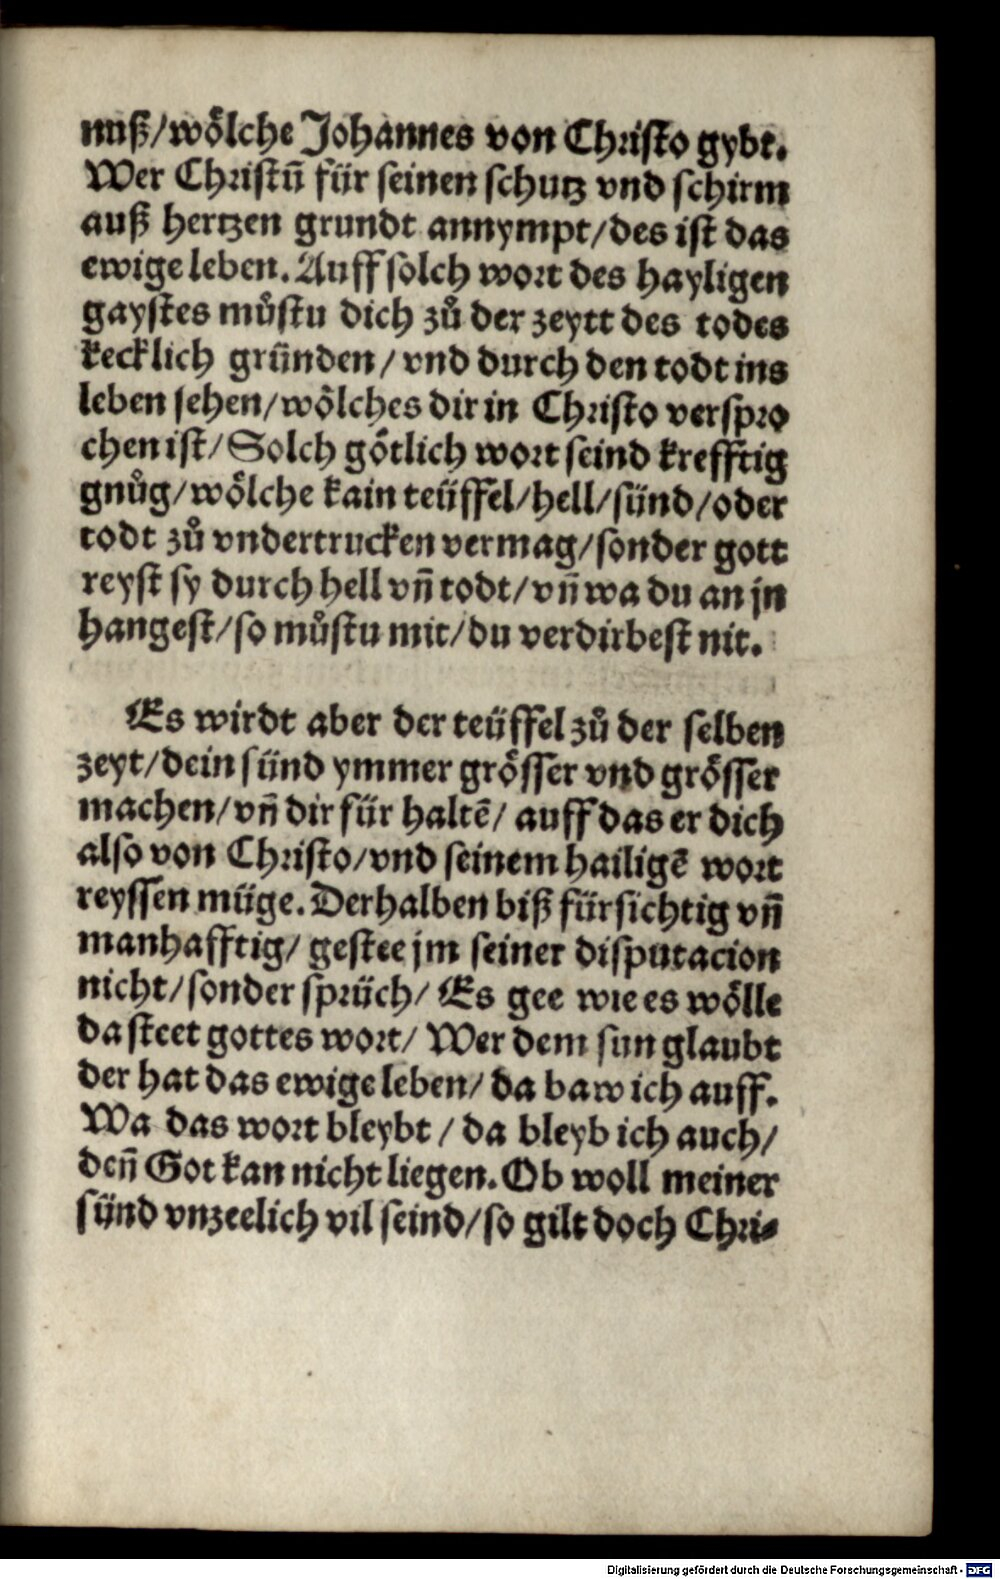 nuß/woͤlche Johannes von Christo gybt.
Wer Christū für seinen schutz vnd schirm
auß hertzen grundt annympt/des ist das
ewige leben. Auff solch wort des hayligen
gaystes můstu dich zů der zeytt des todes
kecklich gründen/vnd durch den todt ins
leben sehen/woͤlches dir in Christo verspro
chen ist/Solch goͤtlich wort seind krefftig
gnůg/woͤlche kain teüffel/hell/sünd/oder
todt zů vndertrucken vermag/sonder gott
reyst sy durch hell vñ todt/vñ wa du an jn
hangest/so můstu mit/du verdirbest nit.
Es wirdt aber der teüffel zů der selben
zeyt/dein sünd ymmer groͤsser vnd groͤsser
machen/vñ dir für haltē/auff das er dich
also von Christo/vnd seinem hailigē wort
reyssen müge. Derhalben biß fürsichtig vñ
manhafftig/gestee jm seiner disputacion
nicht/sonder sprüch/Es gee wie es woͤlle
da steet gottes wort/Wer dem sun glaubt
der hat das ewige leben/da baw ich auff.
Wa das wort bleybt/da bleyb ich auch/
deñ Got kan nicht liegen. Ob woll meiner
sünd vnzeelich vil seind/so gilt doch Chri⸗
Digitalisierung gefördert durch die Deutsche Forschungsgemeinschaft - DFG